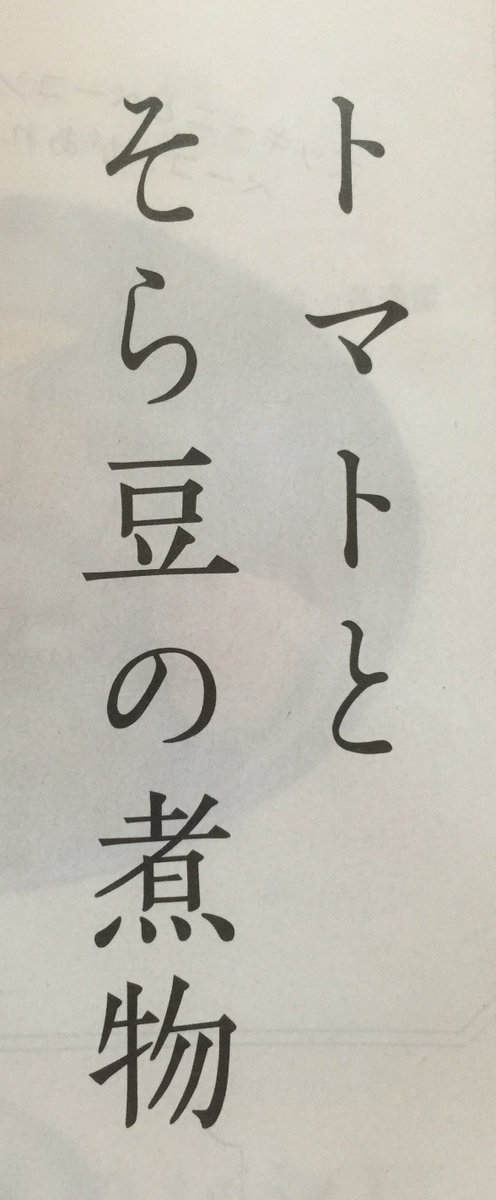 トマトと
そら豆の煮物